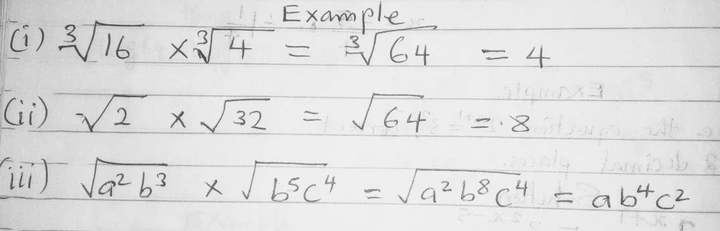 Example
(i) ∛16 × ∛4 = ∛64 = 4
(ii) √2 × √32 = √64 = 8
(iii) √a²b³ × √b⁵c⁴ = √a²b⁸c⁴ = ab⁴c²